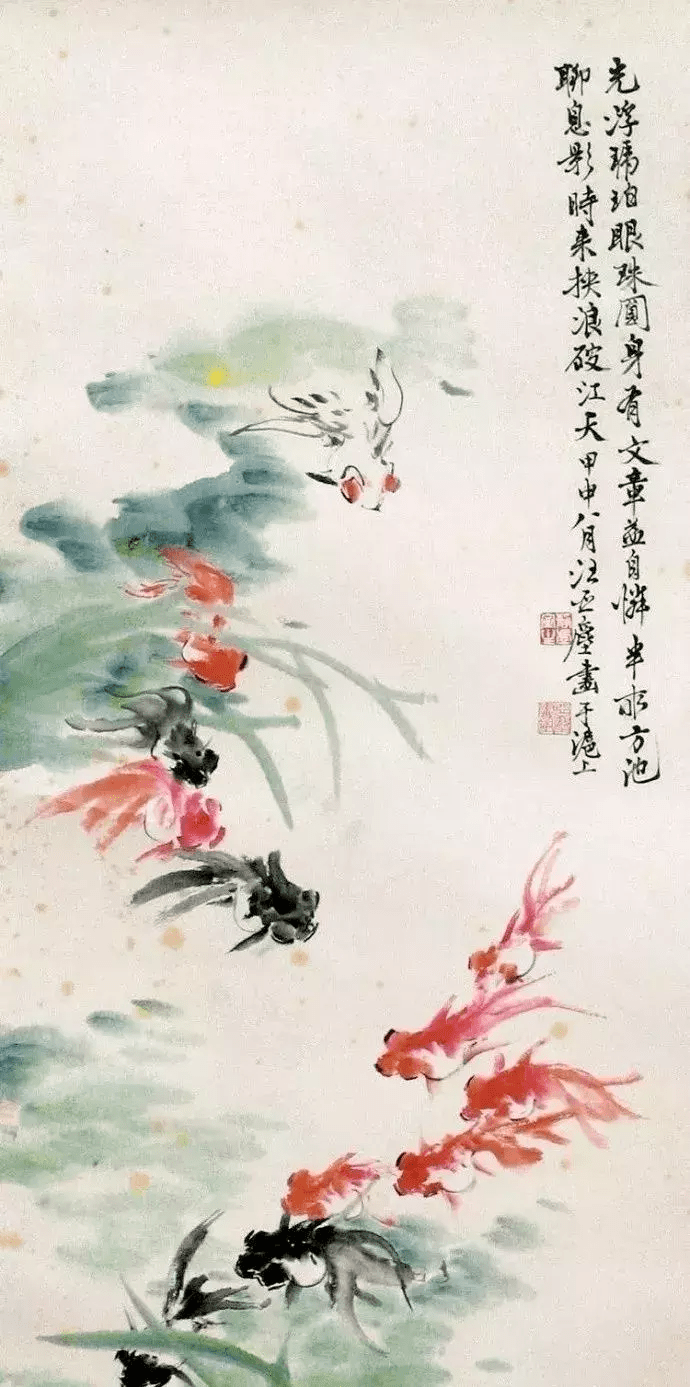 光浮琥珀眼珠圓身有文章益自憐半畝方池
聊息影時来挾浪破江天甲申八月汪亞塵畫于滬上